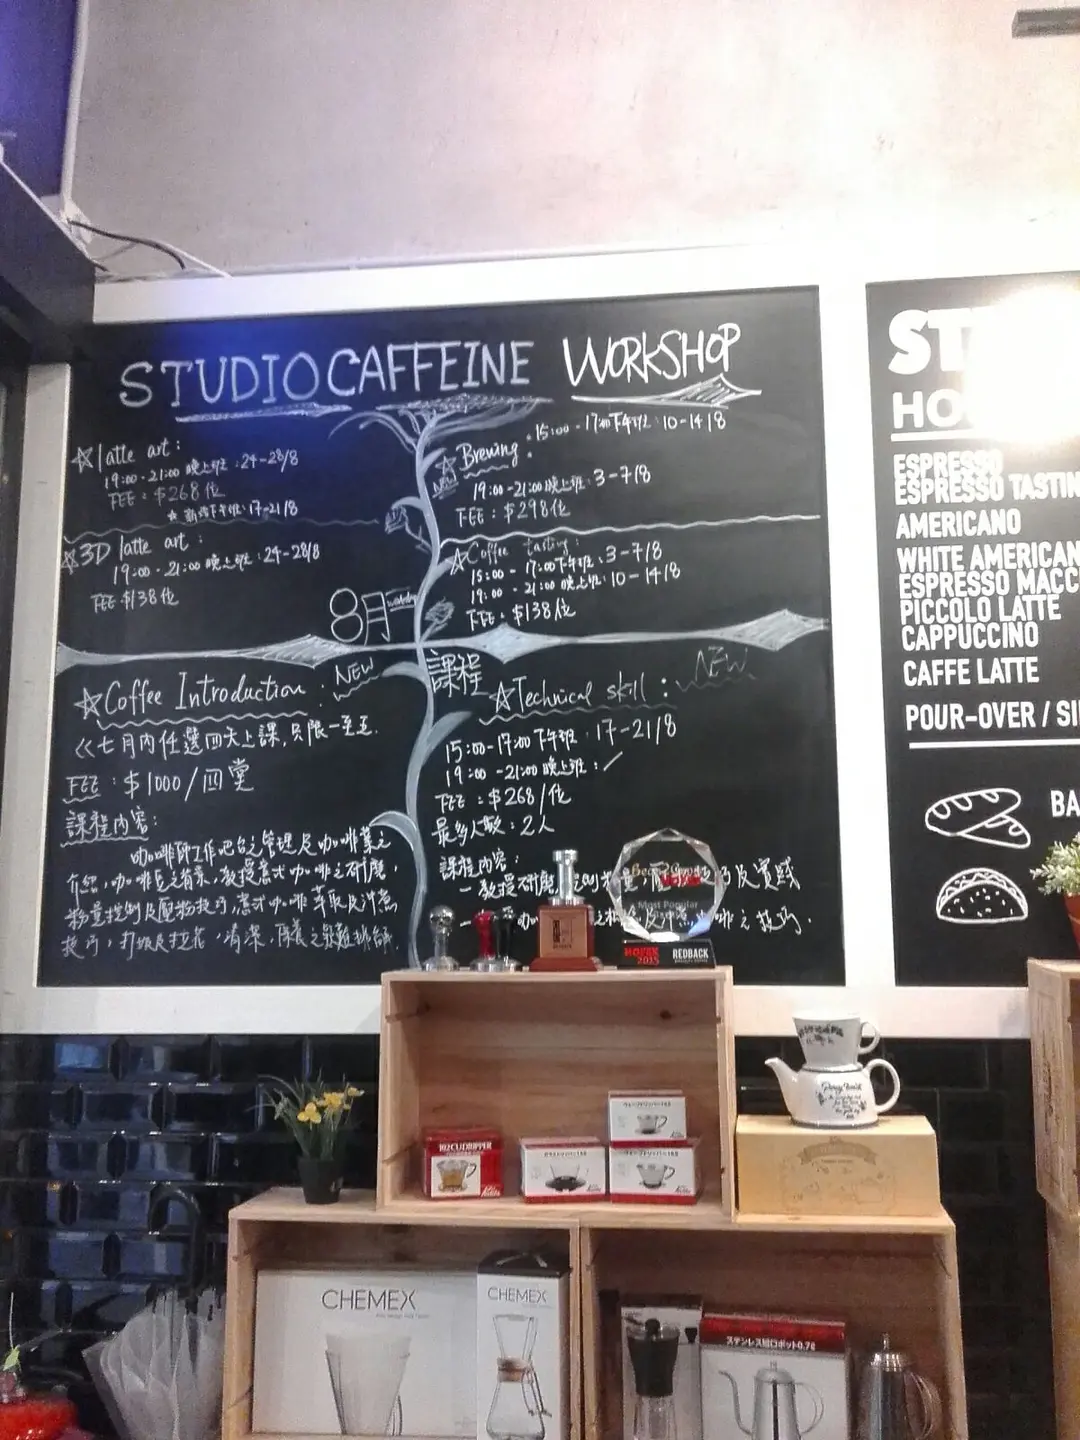 STUDIO CAFFEINE WORKSHOP
☆latte art:
19:00-21:00 晚上班:24-28/8
FEE:$268位
下午班:17-21/8
☆3D latte art:
19:00-21:00晚上班:24-28/8
FEE $138位
8月
workshop
☆Brewing:
15:00-17:00下午班:10-14/8
NEW
19:00-21:00晚上班:3-7/8
FEE:$298位
☆Coffee tasting:
15:00-17:00下午班:3-7/8
19:00-21:00晚上班:10-14/8
FEE:$138位
課程
☆Coffee Introduction:
NEW
七月內任選四天上課,只限一至五.
FEE:$1000/四堂
課程內容:
咖啡師工作吧台之管理及咖啡業之
介紹,咖啡豆之背景,教授意式咖啡之研磨,
粉量控制及壓粉技巧,意式咖啡萃取及沖煮
技巧,打奶及拉花,清潔,
☆Technical skill:
NEW
15:00-17:00下午班:17-21/8
19:00-21:00晚上班:
FEE:$268/位
最多人數:2人
課程內容:
一 教授研磨,
及實踐
咖啡之技巧.
Most Popular
HOFEX
2015
REDBACK
ST
HO
ESPRESSO
ESPRESSO TASTIN
AMERICANO
WHITE AMERICAN
ESPRESSO MACC
PICCOLO LATTE
CAPPUCCINO
CAFFE LATTE
POUR-OVER / SI
BA
102 CU DRIPPER
Kalita
Kalita
Kalita
CHEMEX
CHEMEX
ステンレス細口ポット0.7ℓ